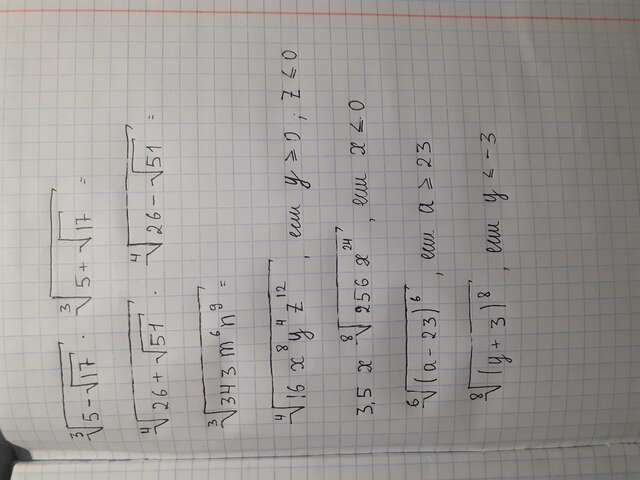 ∛(5-√17) · ∛(5+√17) =
∜(26+√51) · ∜(26-√51) =
∛(343m⁶n⁹) =
∜(16x⁸y⁴z¹²), если y ≥ 0; z ≤ 0
3,5x ⁸√(256x²⁴), если x ≤ 0
⁶√((a-23)⁶), если a ≥ 23
⁸√((y+3)⁸), если y ≤ -3